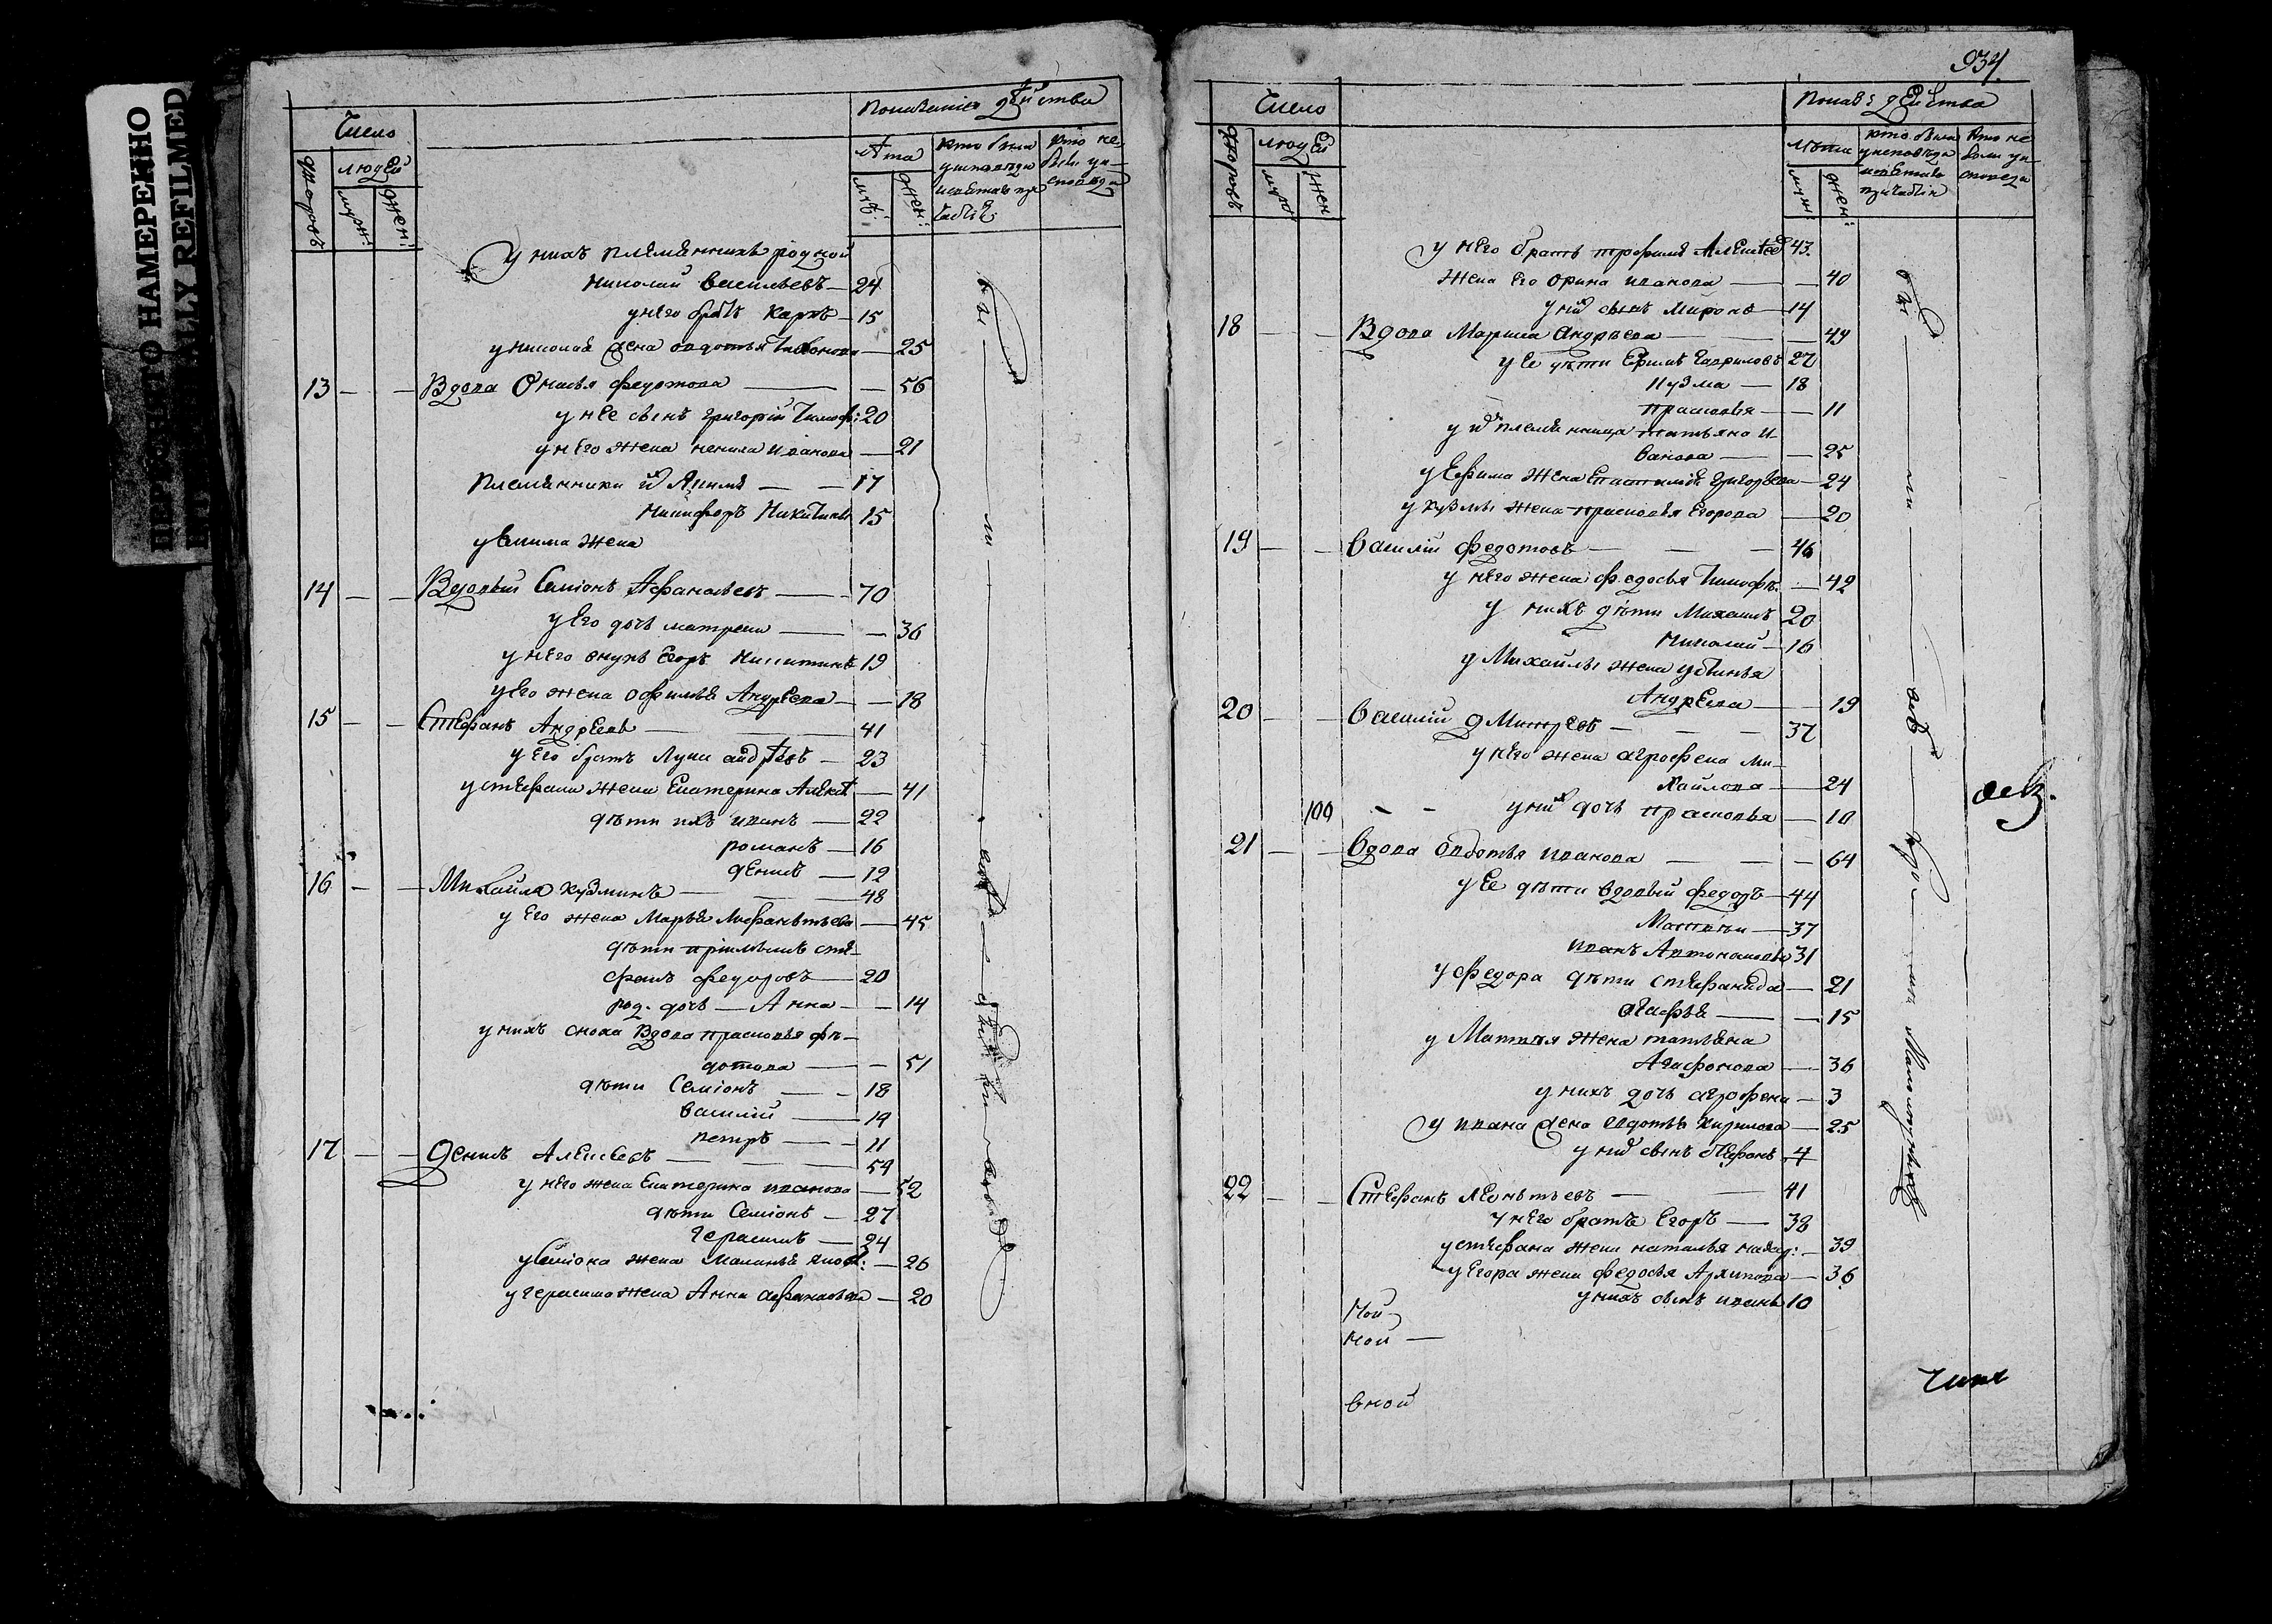 ПЕРЕСНЯТО НАМЕРЕННО
INTENTIONALLY REFILMED
Число
Показание действа
дворовъ
людей
муж:
жен:
лѣта
муж:
жен:
кто былъ
у исповеди
кто не
у нихъ племянникъ родной
николай васильевъ — 24
у него братъ карпъ — 15
у николая жена овдотья Тихонова — 25
13 — — Вдова офимья федотова — 56
у нее сынъ григорiй Тимоф: 20
у него жена ненила иванова — 21
племянники ихъ Якимъ — 17
Никифоръ Никитинъ 15
у Екима жена
14 — — Вдовый Семiонъ Афанасьевъ — 70
у его дочь матрена — 36
у него внукъ Егоръ Никитинъ 19
у его жена офимья Андреева — 18
15 — — Степанъ Андреевъ — 41
у его братъ Лука андреевъ — 23
у стефана жена Екатерина Алекс — 41
дѣти ихъ иванъ — 22
романъ — 16
денисъ — 12
16 — — Михайла кузминъ — 48
у его жена Марья — 45
дѣти прiимышъ сте-
фанъ федоровъ — 20
род. дочь — Анна — 14
у нихъ сноха Вдова прасковья фе-
дотова — 51
дѣти Семiонъ — 18
василiй — 14
петръ — 11
17 — — Денисъ Алексеевъ — 54
у него жена Екатерина иванова — 52
дѣти Семiонъ — 27
герасимъ — 24
у Семiона жена Маланья — 26
у герасима жена Анна афанасьева — 20
934
Число
Показ: действа
дворовъ
людей
муж
жен
лѣта
муж
жен:
кто былъ
у исповеди
причастiя
кто не
былъ у и-
споведи
у него братъ трофимъ Алексеев 43
жена его орина иванова — 40
у них сынъ Миронъ — 14
18 — — Вдова Марина андрѣева — 49
у ее дѣти Ефимъ Гавриловъ 27
кузма — 18
прасковья — 11
у их племянница татьяна и-
ванова — 25
у Ефима жена григорьева — 24
у кузмы жена прасковья Егорова — 20
19 — — василiй федотовъ — 46
у него жена федосья Тимофѣ: — 42
у нихъ дѣти Михаилъ 20
николай — 16
у Михайлы жена устинья
Андреева — 19
20 — — василiй дмитревъ — 37
у него жена агрофена ми-
хайлова — 24
100 — — у них дочь прасковья — 10
21 — — вдова овдотья иванова — 64
у ее дѣти вдовый федоръ — 44
Матвѣй — 37
иванъ Артомоновъ 31
у федора дѣти стефанида — 21
агафья — 15
у Матвѣя жена татьяна
Агафонова — 36
у нихъ дочь агрофена — 3
у ивана жена овдотья кирилова — 25
у них сынъ стефанъ 4
22 — — Стефанъ леонтьевъ — 41
у него братъ Егоръ — 38
у стефана жена наталья макар: — 39
у Егора жена федосья Архипова — 36
у нихъ сынъ иванъ 10
ной
ной —
вной